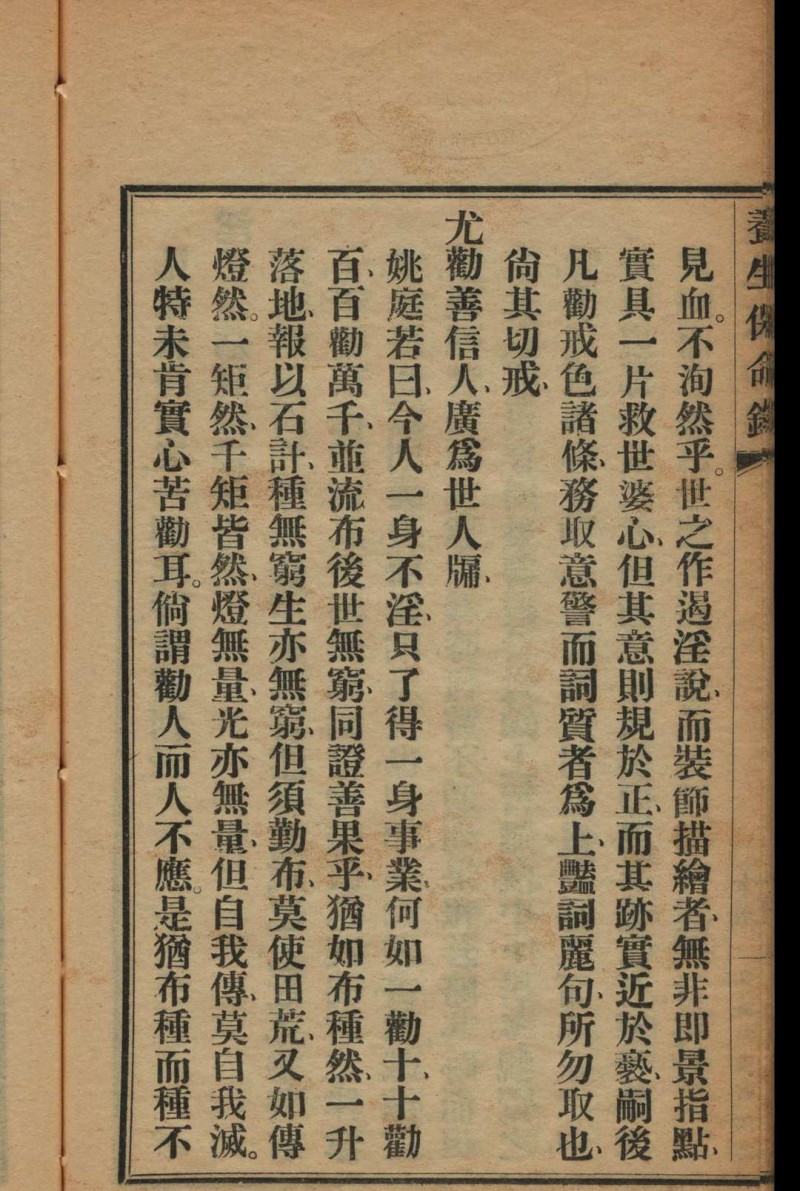 養生保命錄
見血。不洵然乎。世之作遏淫說、而裝飾描繪者、無非卽景指點、
實具一片救世婆心、但其意則規於正、而其跡實近於褻、嗣後
凡勸戒色諸條、務取意警而詞質者爲上、豔詞麗句、所勿取也、
尙其切戒、
尤勸善信人、廣爲世人牖、
姚庭若曰、今人一身不淫、只了得一身事業、何如一勸十、十勸
百、百勸萬千、並流布後世無窮、同證善果乎、猶如布種然、一升
落地、報以石計、種無窮生亦無窮、但須勤布、莫使田荒、又如傳
燈然。一矩然、千矩皆然、燈無量、光亦無量、但自我傳、莫自我滅。
人特未肯實心苦勸耳。倘謂勸人而人不應。是猶布種而種不